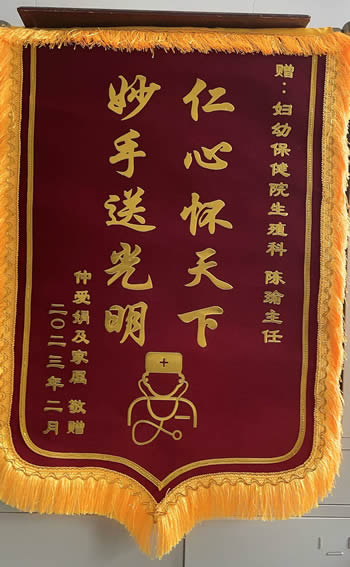 赠：妇幼保健院生殖科 陈瑜主任
仁心怀天下
妙手送光明
仲爱娟及家属 敬赠
二〇二三年二月